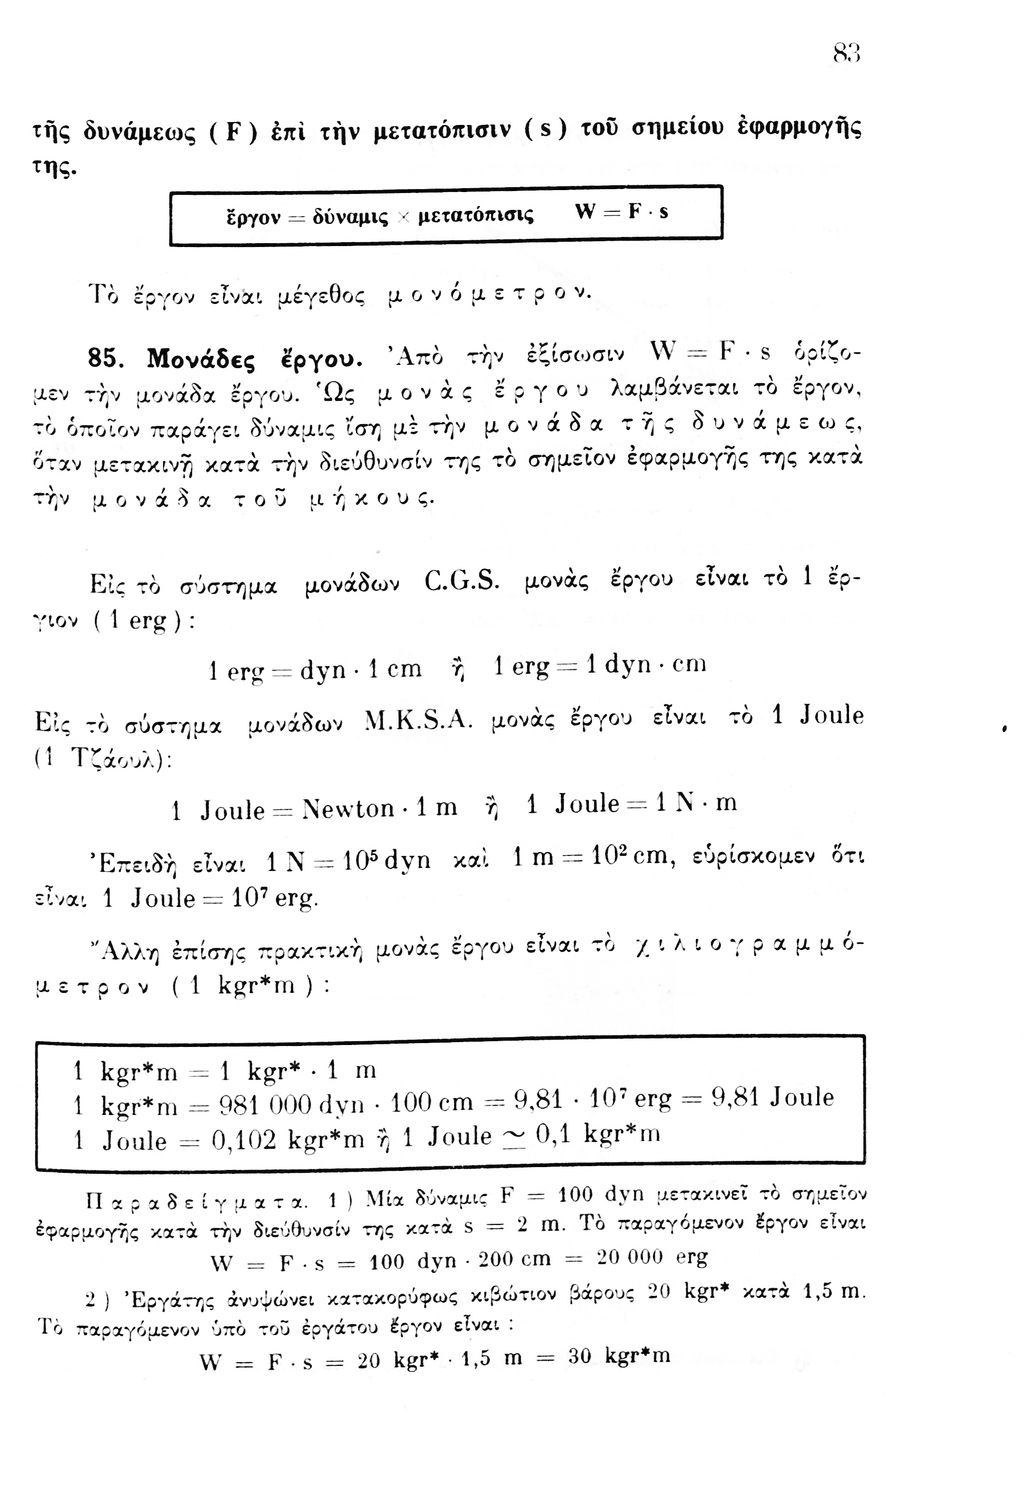 83
τῆς δυνάμεως ( F ) ἐπὶ τὴν μετατόπισιν ( s ) τοῦ σημείου ἐφαρμογῆς
της.
ἔργον = δύναμις × μετατόπισις W = F · s
Τὸ ἔργον εἶναι μέγεθος μονόμετρον.
85. Μονάδες ἔργου. Ἀπὸ τὴν ἐξίσωσιν W = F · s ὁρίζο-
μεν τὴν μονάδα ἔργου. Ὡς μονὰς ἔργου λαμβάνεται τὸ ἔργον,
τὸ ὁποῖον παράγει δύναμις ἴση μὲ τὴν μονάδα τῆς δυνάμεως,
ὅταν μετακινῇ κατὰ τὴν διεύθυνσίν της τὸ σημεῖον ἐφαρμογῆς της κατὰ
τὴν μονάδα τοῦ μήκους.
Εἰς τὸ σύστημα μονάδων C.G.S. μονὰς ἔργου εἶναι τὸ 1 ἔρ-
γιον ( 1 erg ) :
1 erg = dyn · 1 cm ἢ 1 erg = 1 dyn · cm
Εἰς τὸ σύστημα μονάδων M.K.S.A. μονὰς ἔργου εἶναι τὸ 1 Joule
(1 Τζάουλ):
1 Joule = Newton · 1 m ἢ 1 Joule = 1 N · m
Ἐπειδὴ εἶναι 1 N = 10⁵ dyn καὶ 1 m = 10² cm, εὑρίσκομεν ὅτι
εἶναι 1 Joule = 10⁷ erg.
Ἄλλη ἐπίσης πρακτικὴ μονὰς ἔργου εἶναι τὸ χιλιογραμμό-
μετρον ( 1 kgr*m ) :
1 kgr*m = 1 kgr* · 1 m
1 kgr*m = 981 000 dyn · 100 cm = 9,81 · 10⁷ erg = 9,81 Joule
1 Joule = 0,102 kgr*m ἢ 1 Joule ≃ 0,1 kgr*m
Παραδείγματα. 1 ) Μία δύναμις F = 100 dyn μετακινεῖ τὸ σημεῖον
ἐφαρμογῆς κατὰ τὴν διεύθυνσίν της κατὰ s = 2 m. Τὸ παραγόμενον ἔργον εἶναι
W = F · s = 100 dyn · 200 cm = 20 000 erg
2 ) Ἐργάτης ἀνυψώνει κατακορύφως κιβώτιον βάρους 20 kgr* κατὰ 1,5 m.
Τὸ παραγόμενον ὑπὸ τοῦ ἐργάτου ἔργον εἶναι :
W = F · s = 20 kgr* · 1,5 m = 30 kgr*m